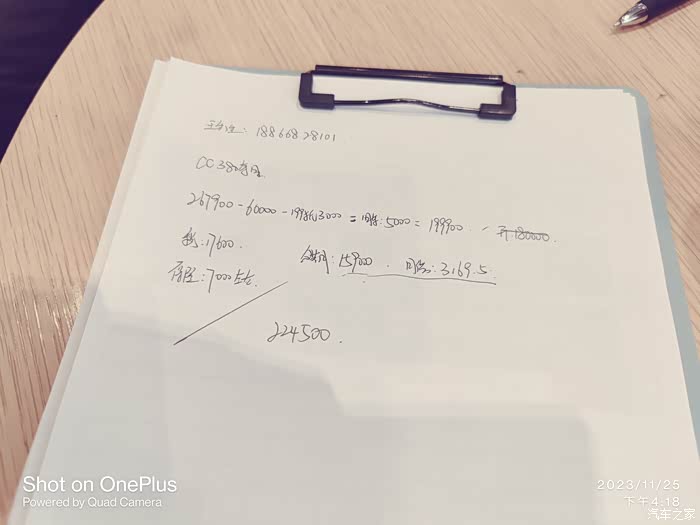 18866828101
CC 380
267900 - 60000 - 199抵3000 = 5000 = 199900 开180000.
税:17600.
保险:7000左右.
15900. 月供:3169.5
224500.
Shot on OnePlus
Powered by Quad Camera
2023/11/25
下午4:18
汽车之家